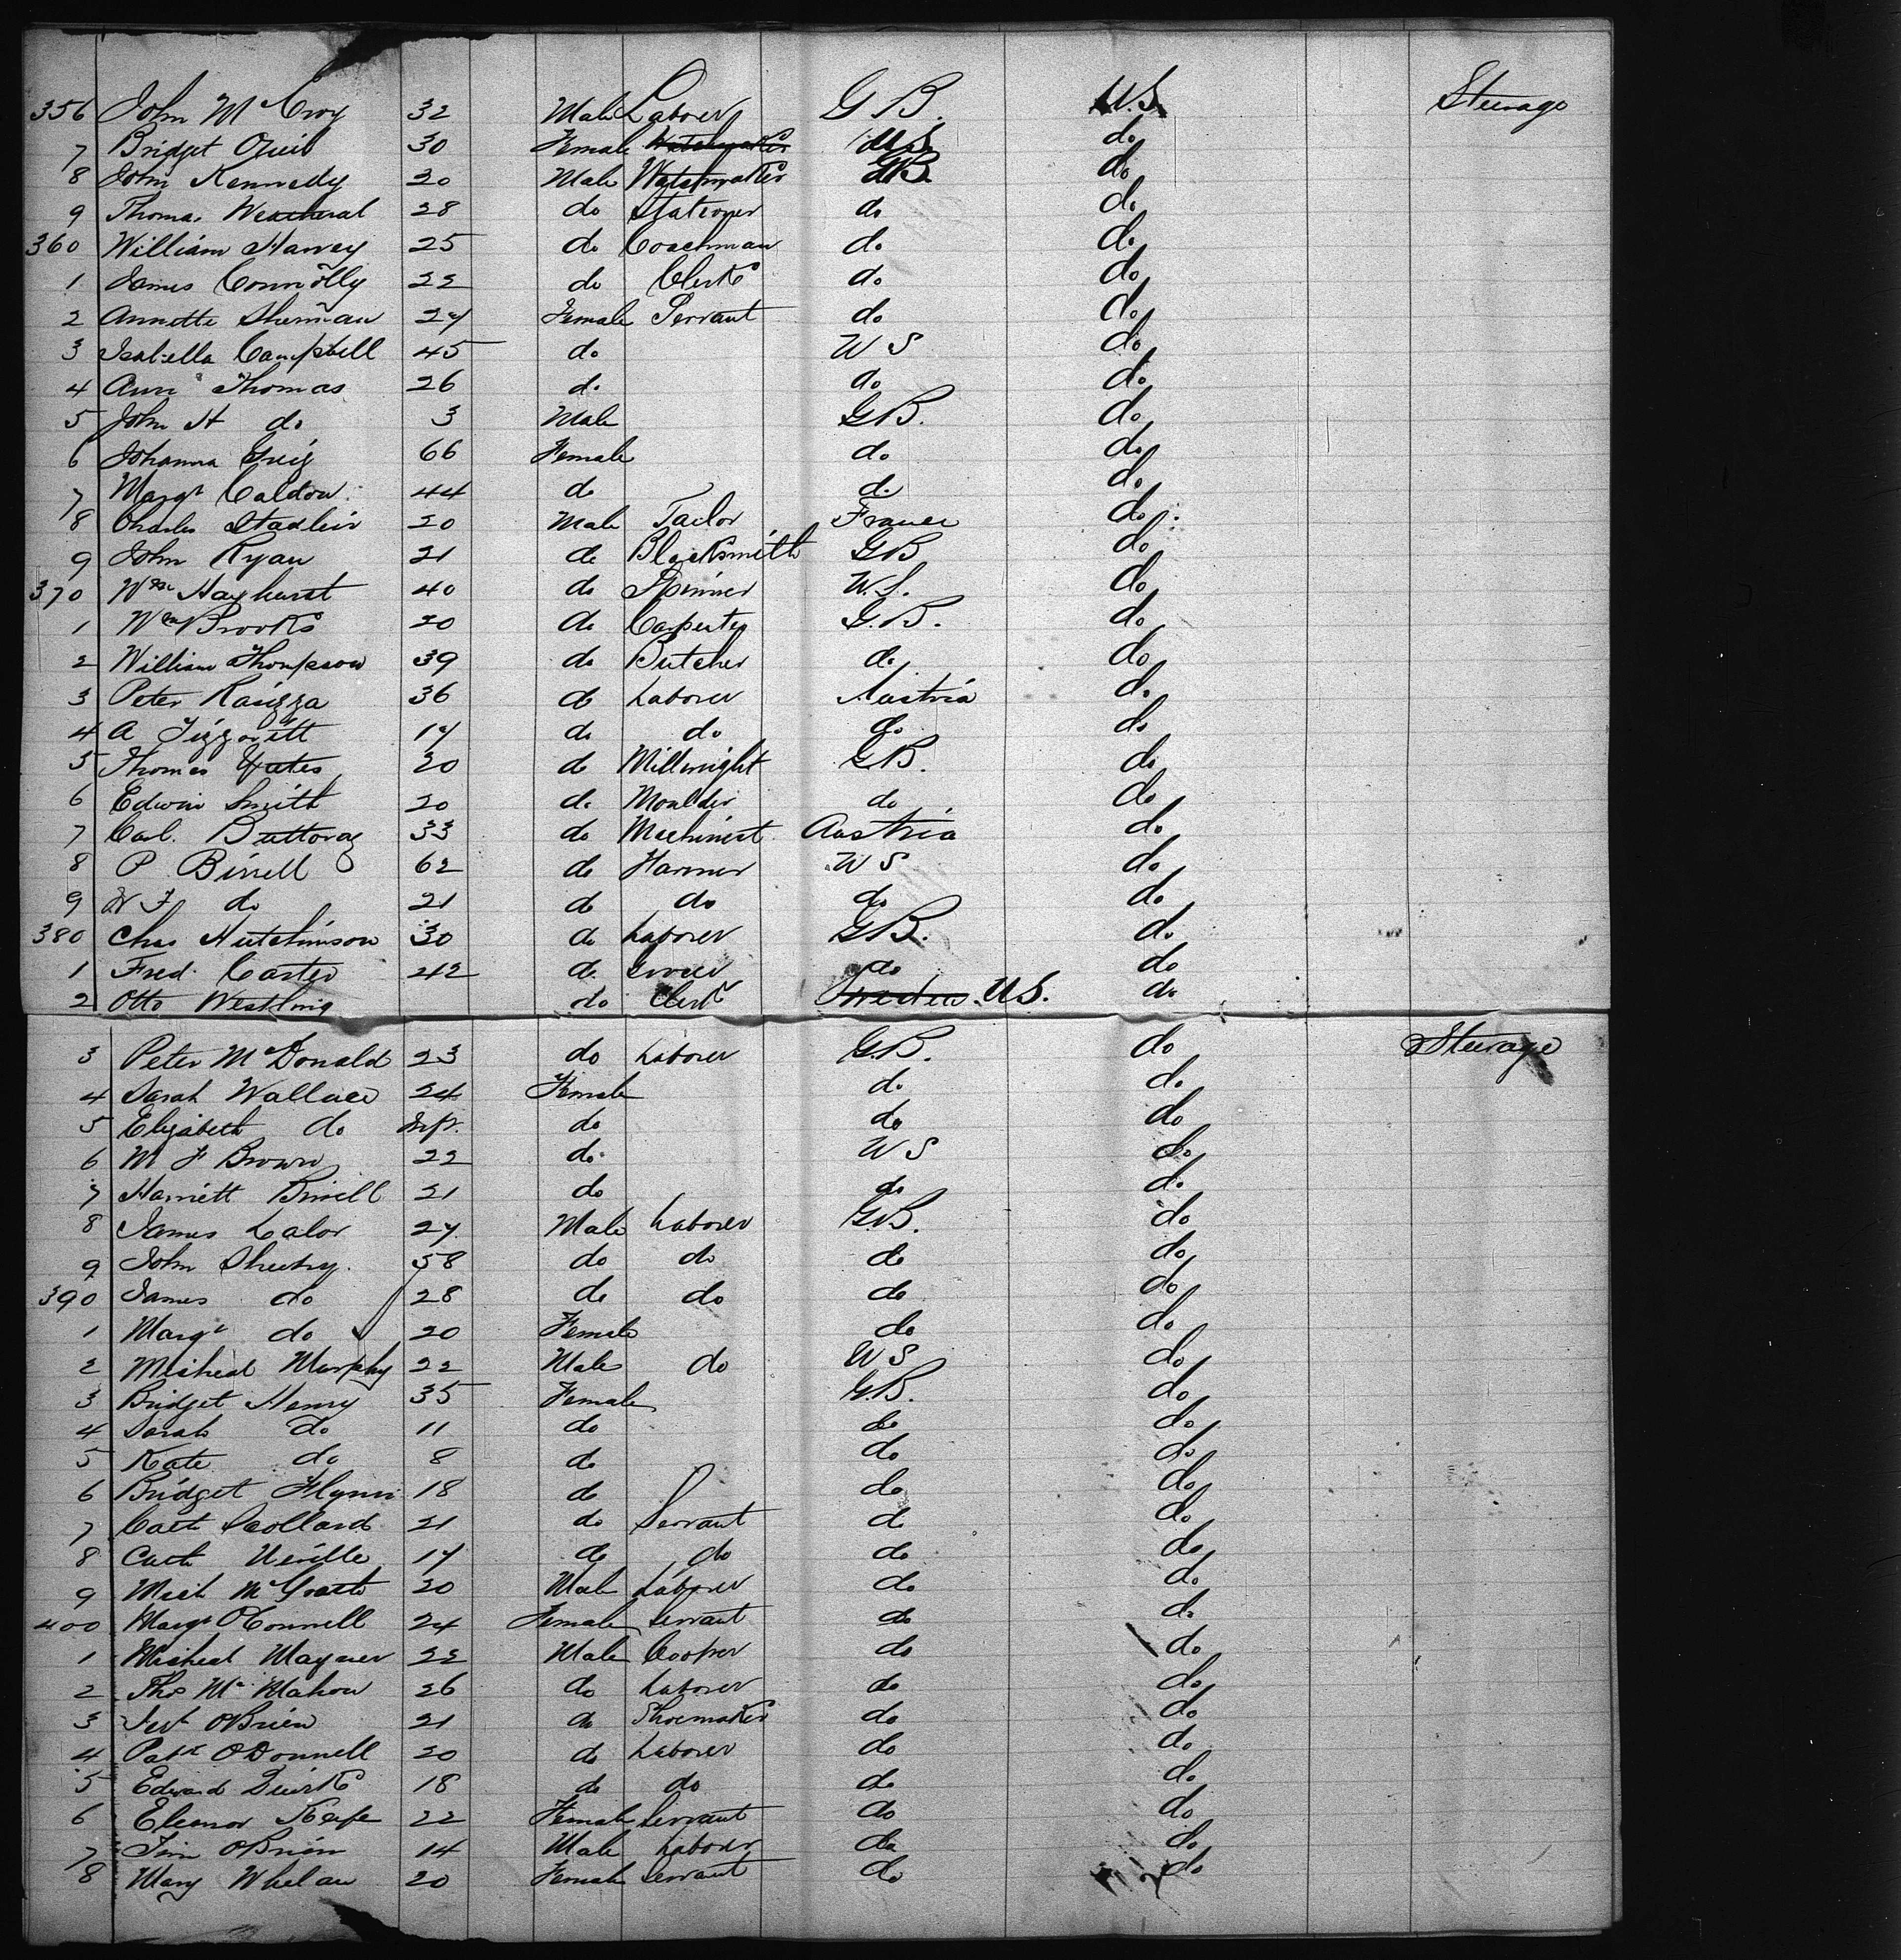 356 John McCroy 32 Male Laborer G B. U.S. Steerage
7 Bridget 30 Female Watchmaker U S do
8 John Kennedy 20 Male Watchmaker G B. do
9 Thomas Weatheral 28 do Stationer do do
360 William Harvey 25 do Coachman do do
1 James Connolly 22 do Clerk do do
2 Annette Sherman 27 Female Servant do do
3 Isabella Campbell 45 do U S do
4 Ann Thomas 26 do do do
5 John H do 3 Male G B. do
6 Johanna Greig 66 Female do do
7 Margt Caldow 44 do do do
8 Charles 20 Male Tailor France do
9 John Ryan 21 do Blacksmith G B do
370 Wm Hayhurst 40 do Spinner U.S. do
1 Wm Brooks 20 do Carpenter G.B. do
2 William Thompson 39 do Butcher do do
3 Peter 36 do Laborer Austria do
4 A 17 do do do do
5 Thomas Yates 20 do Millwright G B. do
6 Edwin Smith 20 do Moulder do do
7 Carl 33 do Machinist Austria do
8 P Birrell 62 do Farmer U S do
9 W F do 21 do do do do
380 Chas Hutchinson 30 do Laborer G B. do
1 Fred. Carter 42 do Grocer do do
2 Otto Westling do Clerk Sweden U S. do
3 Peter McDonald 23 do Laborer G.B. do Steerage
4 Sarah Wallace 24 Female do do
5 Elizabeth do Inft. do do do
6 M F Brown 22 do U S do
7 Harriett Birrell 21 do do do
8 James Lalor 27 Male Laborer G.B. do
9 John Sheehy 58 do do do do
390 James do 28 do do do do
1 Margt do 20 Female do do
2 Micheal Murphy 22 Male do U S do
3 Bridget Henry 35 Female G.B. do
4 Sarah do 11 do do do
5 Kate do 8 do do do
6 Bridget Flynn 18 do do do
7 Cath Scollard 21 do Servant do do
8 Cath Neville 17 do do do do
9 Mich McGrath 20 Male Laborer do do
400 Margt O'Connell 24 Female Servant do do
1 Micheal Wagner 22 Male Cooper do do
2 Thos McMahon 26 do Laborer do do
3 O'Brien 21 do Shoemaker do do
4 Patk O'Donnell 20 do Laborer do do
5 Edward Quirk 18 do do do do
6 Eleanor Keefe 22 Female Servant do do
7 Tim O'Brien 14 Male Laborer do do
8 Mary Whelan 20 Female Servant do do